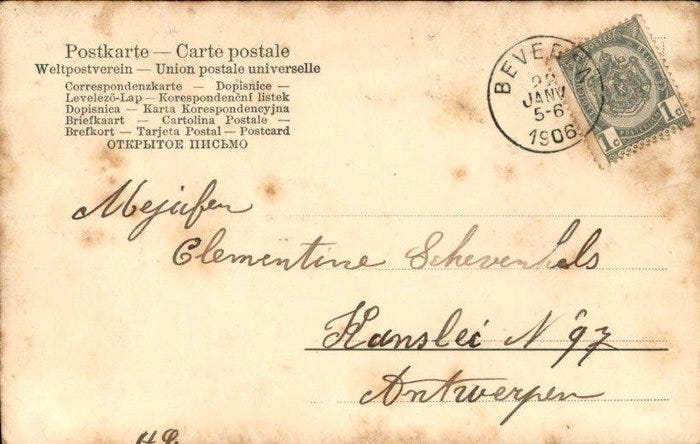 Postkarte — Carte postale
Weltpostverein — Union postale universelle
Correspondenzkarte — Dopisnice —
Levelező-Lap — Korespondenční listek
Dopisnica — Karta Korespondencyjna
Briefkaart — Cartolina Postale —
Brefkort — Tarjeta Postal — Postcard
ОТКРЫТОЕ ПИСЬМО
BEVEREN
22
JANV
5-6
1906
1c 1c
Mejufer
Clementine Schevenhels
Kanslei N° 97
Antwerpen